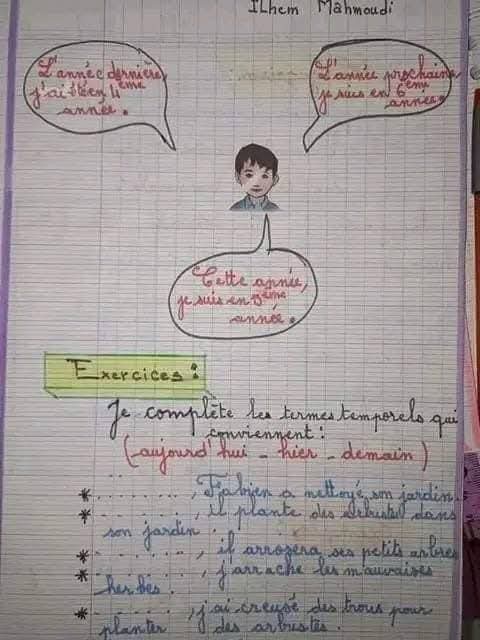 Ilhem Mahmoudi
L'année dernière,
j'ai été en 4ème
année.
L'année prochaine,
je suis en 6ème
année.
Cette année,
je suis en 5ème
année.
Exercices :
Je complète les termes temporels qui
conviennent :
(aujourd'hui - hier - demain)
* ........, Fabien a nettoyé son jardin.
* ........, il plante des arbustes dans
son jardin.
* ........, il arrosera ses petits arbres
* ........, j'arrache les mauvaises
herbes.
* ........, j'ai creusé des trous pour
planter des arbustes.